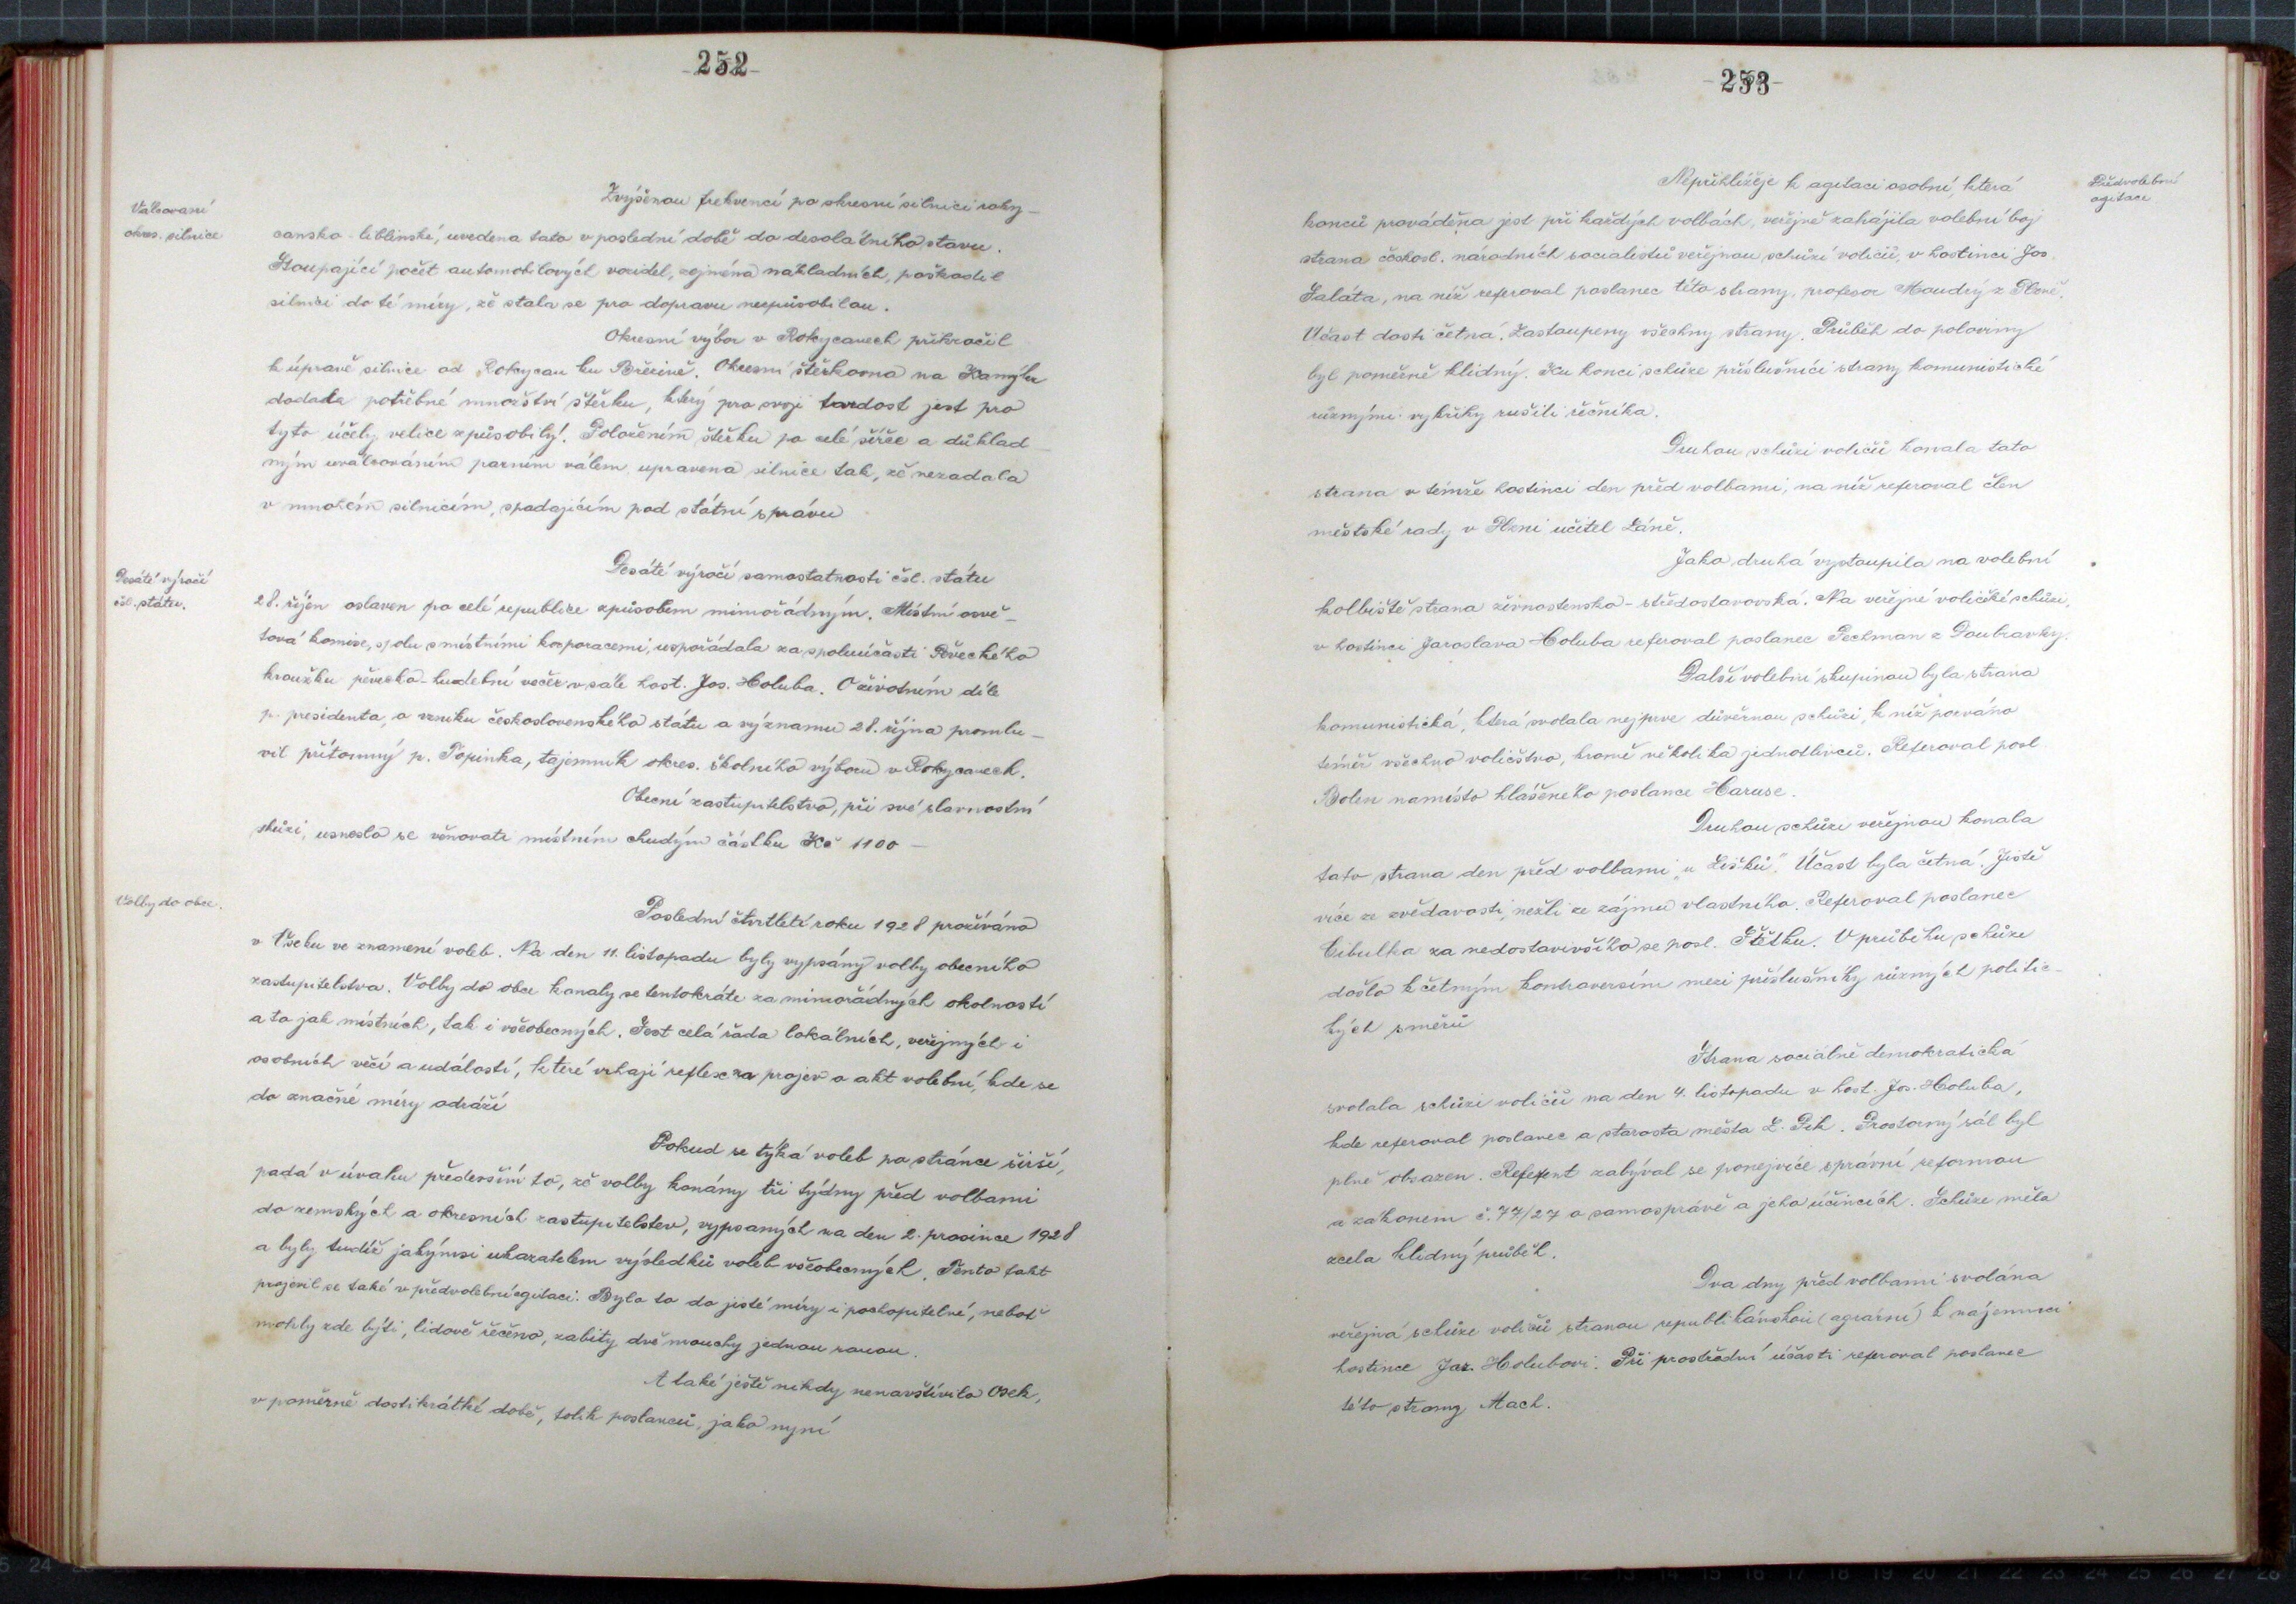 252
Válcovaní
okres. silnice
Zvýšenou frekvencí po okresní silnici roky-
cansko-liblínské, uvedena tato v poslední době do desolátního stavu.
Stoupající počet automobilových vozidel, zejména nákladních, poškodil
silnici do té míry, že stala se pro dopravu nezpůsobilou.
Okresní výbor v Rokycanech přikročil
k úpravě silnice od Rokycan ku Březině. Okresní štěrkovna na Kamýku
dodala potřebné množství štěrku, který pro svoji tvrdost jest pro
tyto účely velice způsobilý. Položením štěrku po celé šířce a důklad-
ným uválcováním parním válem, upravena silnice tak, že nezadala
v mnohém silnicím, spadajícím pod státní správu
Desáté výročí
čsl. státu.
Desáté výročí samostatnosti čsl. státu
28. říjen oslaven po celé republice způsobem mimořádným. Místní osvě-
tová komise, spolu s místními korporacemi, uspořádala za spoluúčasti Pěveckého
kroužku pěvecko-hudební večer v sále host. Jos. Holuba. O životním díle
p. presidenta, o vzniku československého státu a významu 28. října promlu-
vil přítomný p. Topinka, tajemník okres. školního výboru v Rokycanech.
Obecní zastupitelstvo, při své slavnostní
schůzi, usneslo se věnovati místním chudým částku Kč 1100 —
Volby do obce.
Poslední čtvrtletí roku 1928 prožíváno
v Oseku ve znamení voleb. Na den 11. listopadu byly vypsány volby obecního
zastupitelstva. Volby do obce konaly se tentokráte za mimořádných okolností
a to jak místních, tak i všeobecných. Jest celá řada lokálních, veřejných i
osobních věcí a událostí, které vrhají reflex na projev a akt volební, kde se
do značné míry odráží
Pokud se týká voleb po stránce širší,
padá v úvahu především to, že volby konány tři týdny před volbami
do zemských a okresních zastupitelstev, vypsaných na den 2. prosince 1928
a byly tudíž jakýmsi ukazatelem výsledků voleb všeobecných. Tento fakt
projevil se také v předvolební agitaci. Bylo to do jisté míry i pochopitelné, neboť
mohly zde býti, lidově řečeno, zabity dvě mouchy jednou ranou.
A také ještě nikdy nenavštívilo Osek,
v poměrně dosti krátké době, tolik poslanců, jako nyní
253
Předvolební
agitace
Nepřihlížeje k agitaci osobní, která
konců prováděna jest při každých volbách, veřejně zahájila volební boj
strana českosl. národních socialistů veřejnou schůzí voličů, v hostinci Jos.
Saláta, na níž referoval poslanec této strany, profesor Moudrý z Plzně.
Účast dosti četná. Zastoupeny všechny strany. Průběh do poloviny
byl poměrně klidný. Ku konci schůze příslušníci strany komunistické
různými vykřiky rušili řečníka.
Druhou schůzi voličů konala tato
strana v témže hostinci den před volbami, na níž referoval člen
městské rady v Plzni učitel Láně.
Jako druhá vystoupila na volební
kolbiště strana živnostensko-středostavovská. Na veřejné voličské schůzi,
v hostinci Jaroslava Holuba referoval poslanec Pechman z Doubravky.
Další volební skupinou byla strana
komunistická, která svolala nejprve důvěrnou schůzi, k níž pozváno
téměř všechno voličstvo, kromě několika jednotlivců. Referoval posl.
Bolen namísto hlášeného poslance Haruse.
Druhou schůzi veřejnou konala
tato strana den před volbami „u Lišků“. Účast byla četná. Jistě
více ze zvědavosti, nežli ze zájmu vlastního. Referoval poslanec
Cibulka za nedostavivšího se posl. Štětku. V průběhu schůze
došlo k četným kontroversím mezi příslušníky různých politic-
kých směrů
Strana sociálně demokratická
svolala schůzi voličů na den 4. listopadu v host. Jos. Holuba,
kde referoval poslanec a starosta města L. Pik. Prostorný sál byl
plně obsazen. Referent zabýval se ponejvíce správní reformou
a zákonem č. 77/27 o samosprávě a jeho účincích. Schůze měla
zcela klidný průběh.
Dva dny před volbami svolána
veřejná schůze voličů stranou republikánskou (agrární) k nájemnici
hostince Jar. Holubovi. Při prostřední účasti referoval poslanec
této strany Mach.